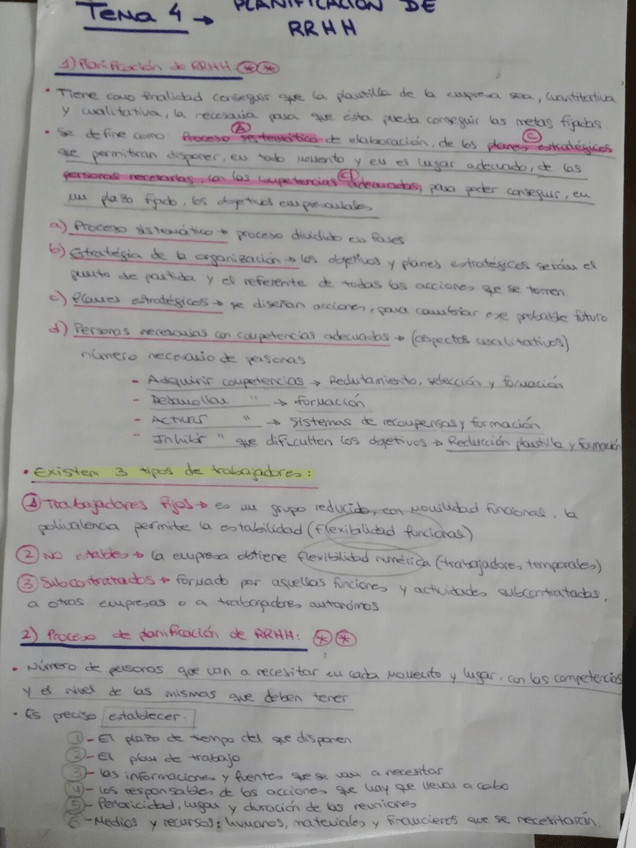 TEMA 4 → PLANIFICACIÓN DE
RRHH
1) Planificación de RRHH:
• Tiene como finalidad conseguir que la plantilla de la empresa sea, cuantitativa
y cualitativa, la necesaria para que ésta pueda conseguir las metas fijadas
• Se define como proceso sistemático de elaboración, de los planes estratégicos
que permitirán disponer, en todo momento y en el lugar adecuado, de las
personas necesarias, con las competencias adecuadas, para poder conseguir, en
un plazo fijado, los objetivos empresariales
a) Proceso sistemático → proceso dividido en fases
b) Estratégia de la organización → los objetivos y planes estratégicos serán el
punto de partida y el referente de todas las acciones que se tomen
c) Planes estratégicos → se diseñan acciones, para cambiar ese probable futuro
d) Personas necesarias con competencias adecuadas → (aspectos cualitativos)
número necesario de personas
- Adquirir competencias → Reclutamiento, selección y formación
- Desarrollar " → formación
- Activar " → sistemas de recompensas y formación
- Inhibir " que dificulten los objetivos → Reducción plantilla y formación
• Existen 3 tipos de trabajadores:
1 Trabajadores fijos → es un grupo reducido, con movilidad funcional, la
polivalencia permite la estabilidad (flexibilidad funcional)
2 No estables → la empresa obtiene flexibilidad numérica (trabajadores temporales)
3 Subcontratados → formado por aquellas funciones y actividades subcontratadas,
a otras empresas o a trabajadores autónomos
2) Proceso de planificación de RRHH:
• Número de personas que van a necesitar en cada momento y lugar, con las competencias
y el nivel de las mismas que deben tener
• Es preciso establecer:
1 - El plazo de tiempo del que disponen
2 - El plan de trabajo
3 - las informaciones y fuentes que se van a necesitar
4 - los responsables de las acciones que hay que llevar a cabo
5 - Periodicidad, lugar y duración de las reuniones
6 - Medios y recursos: humanos, materiales y financieros que se necesitarán.